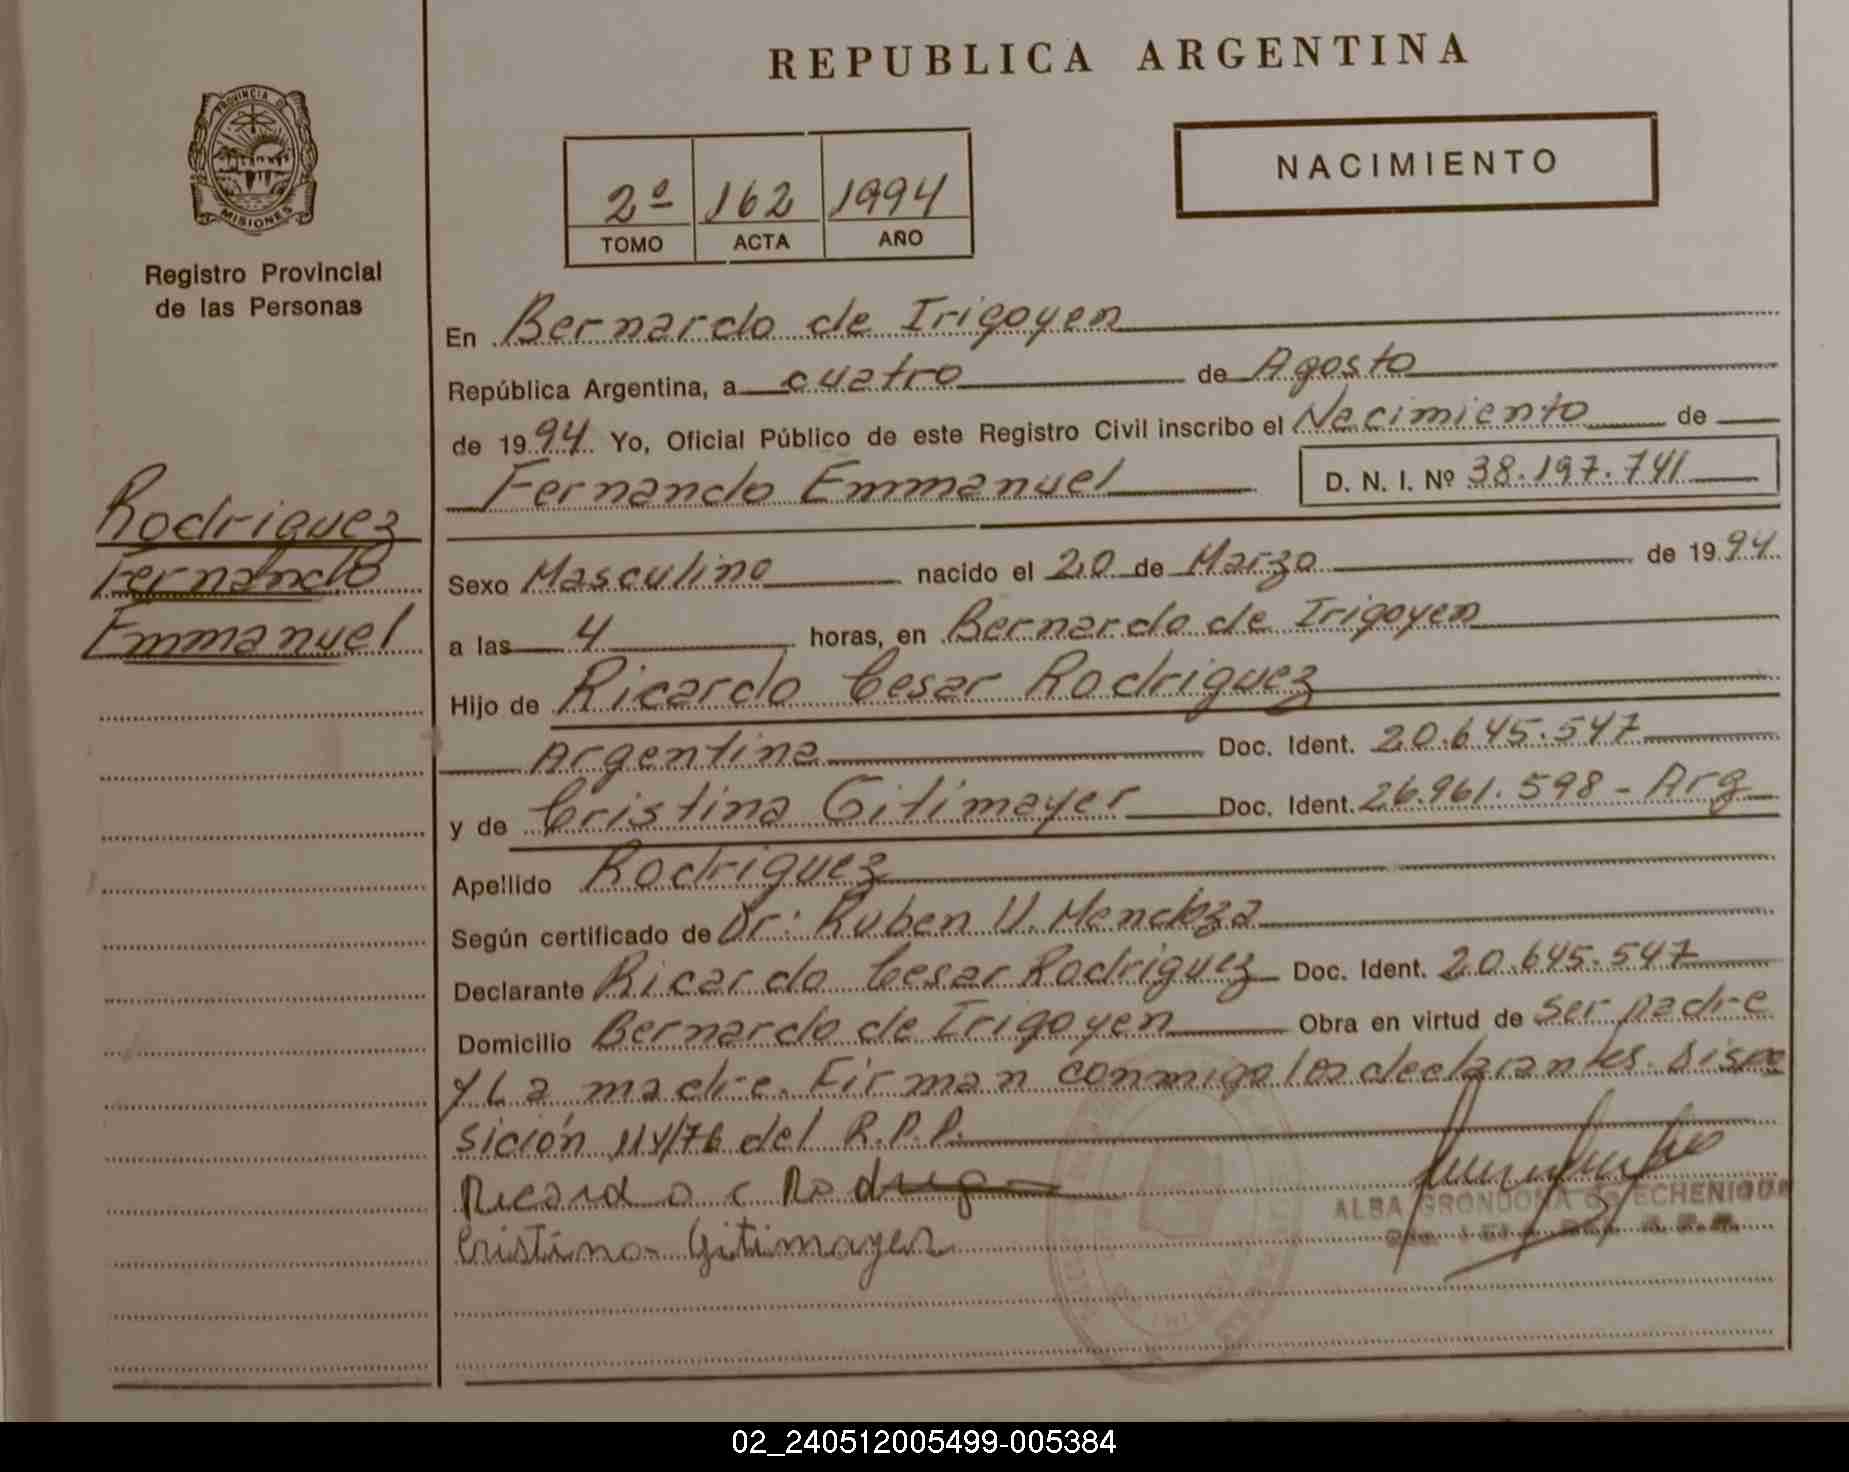 REPUBLICA ARGENTINA
PROVINCIA DE
MISIONES
Registro Provincial
de las Personas
2º 162 1994
TOMO ACTA AÑO
NACIMIENTO
Rodriguez
Fernando
Emmanuel
En Bernardo de Irigoyen
República Argentina, a cuatro de Agosto
de 1994. Yo, Oficial Público de este Registro Civil inscribo el Nacimiento de
Fernando Emmanuel D. N. I. Nº 38.197.741
Sexo Masculino nacido el 20 de Marzo de 1994
a las 4 horas, en Bernardo de Irigoyen
Hijo de Ricardo Cesar Rodriguez
Argentina Doc. Ident. 20.645.547
y de Cristina Gitimayer Doc. Ident. 26.961.598 - Arg
Apellido Rodriguez
Según certificado de Dr: Ruben U. Mendoza
Declarante Ricardo Cesar Rodriguez Doc. Ident. 20.645.547
Domicilio Bernardo de Irigoyen Obra en virtud de ser padre
y La madre. Firman conmigo los declarantes. Dispo
sición 114/76 del R.P.P.
Ricardo C Rodrigo
Cristina Gitimayer
ALBA GRONDONA de ECHENIQUE
02_240512005499-005384